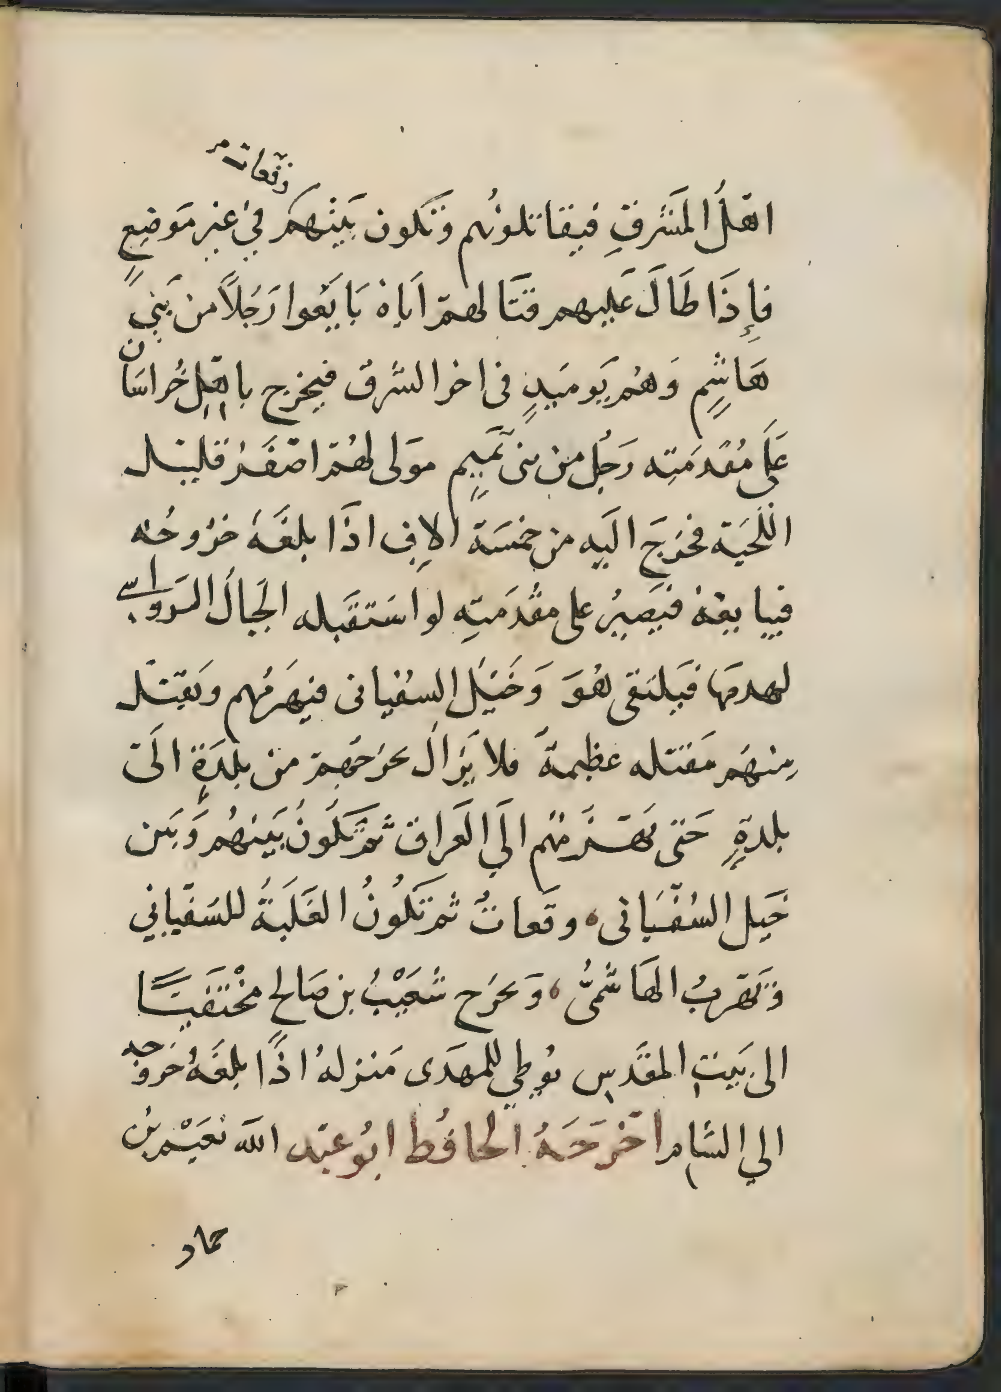 وقعات
اهْلُ المَشَرقِ فيقاتلونُهم وَتكون بَينَهم في غير مَوضِعٍ
فاِذَا طَالَ عَليهم قتَالهمْ اَياهُ بَايَعوا رَجَلاً من بَنيِ
هَاشِمٍ وَهُم يَوميَذٍ في اخر الشرق فيخرج باهْلِ خُراسَان
عَلَى مُقدمَتِه رَجُل من بنى تَميمٍ مَولى لهُمْ اصْفَرُ قليل
اللَحيَة فخرَجَ اليَه من خمسَة الافِ اذَا بلغَهُ خرُوحُه
فيبايعهُ فيَصِيرُ على مقُدمَتِه لو استَقبله الجَبالُ الرَواسي
لهدمَها فيَلتقى هوَ وَخَيْل السفيانى فيهَزمُهم ويَقتل
مِنهُم مَقتله عظيمةً فلا يَزالُ يخرَجُهم من بلدَةٍ الَى
بلدةٍ حَتى يَهزَمهُم الَي العَراق ثمَّ تكَونُ بَينهُم وَبَين
خَيل السُفيَانى وقَعاتٌ ثم تَكُونُ الغَلَبَةُ للسَفيَاني
وَيَهَربُ الهَاشميُّ وَيَخرَج شُعَيْبُ بن صَالح مُخْتَفيًا
الى بَيت المقَدسِ يُوطِي للمهَدى مَنزلهُ اذًا بلغَهُ خرُوجه
الي الشام اخرَجَهُ الحافُظ ابُو عبْد الله نعَيْم بنُ
حماد